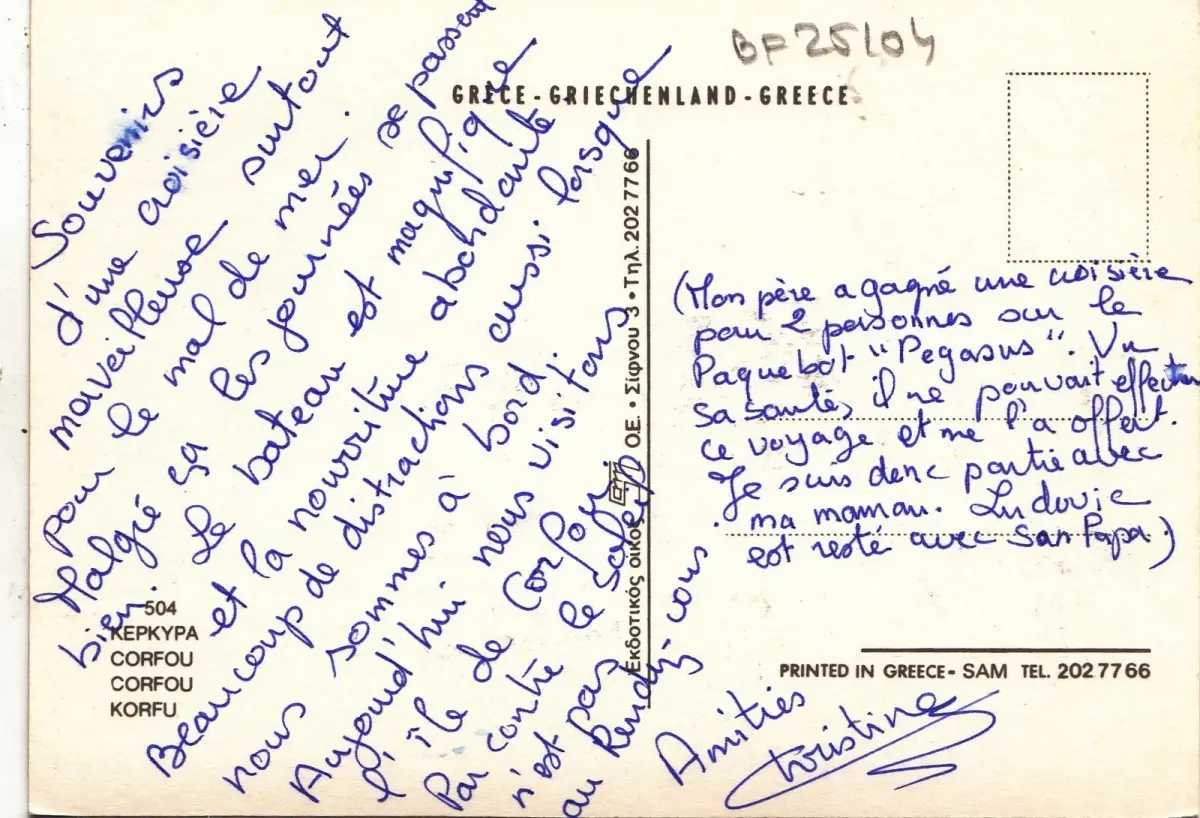 BF 25/04
GRÈCE - GRIECHENLAND - GREECE
Souvenirs
d'une croisière
marveilleuse surtout
pour le mal de mer.
Malgré ça les journées se passent
bien. Le bateau est magnifique
et la nourriture abondante
Beaucoup de distractions aussi lorsque
nous sommes à bord.
Aujourd'hui nous visitons
l'île de Corfou.
Par contre le soleil
n'est pas
au Rendez-vous.
Amitiés
Christine
(Mon père a gagné une croisière
pour 2 personnes sur le
Paquebot "Pegasus". Vu
sa santé, il ne pouvait effectuer
ce voyage et me l'a offert.
Je suis donc partie avec
ma maman. Ludovic
est resté avec son Papa.)
504
ΚΕΡΚΥΡΑ
CORFOU
CORFOU
KORFU
Εκδοτικός οίκος Ο.Ε. • Σίφνου 3 • Τηλ. 2027766
PRINTED IN GREECE - SAM TEL. 2027766